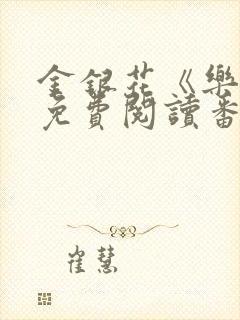 金銀花《樂
免費閱讀番
崔慧